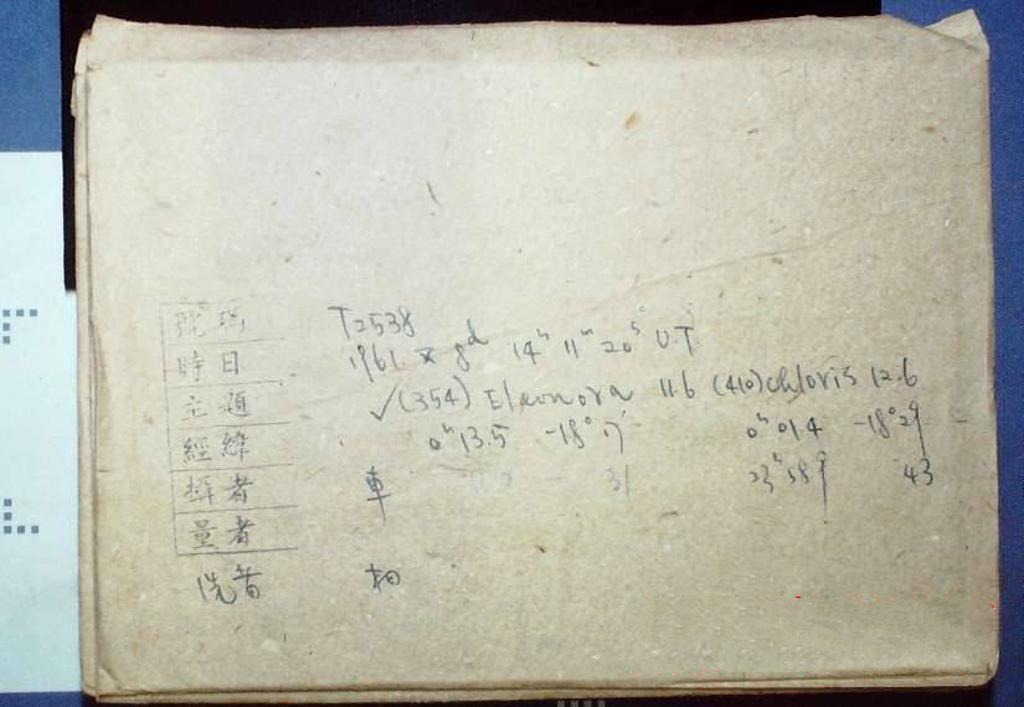 號碼 T2538
時日 1961 X 8d 14h 11m 20s U.T
主題 ✓(354) Eleonora 11.6 (410) chloris 12.6
經緯 0h 13.5 -18° 17' 0h 01.4 -18° 29'
攝者 車 31 23h 58.9 43
量者
洗者 相